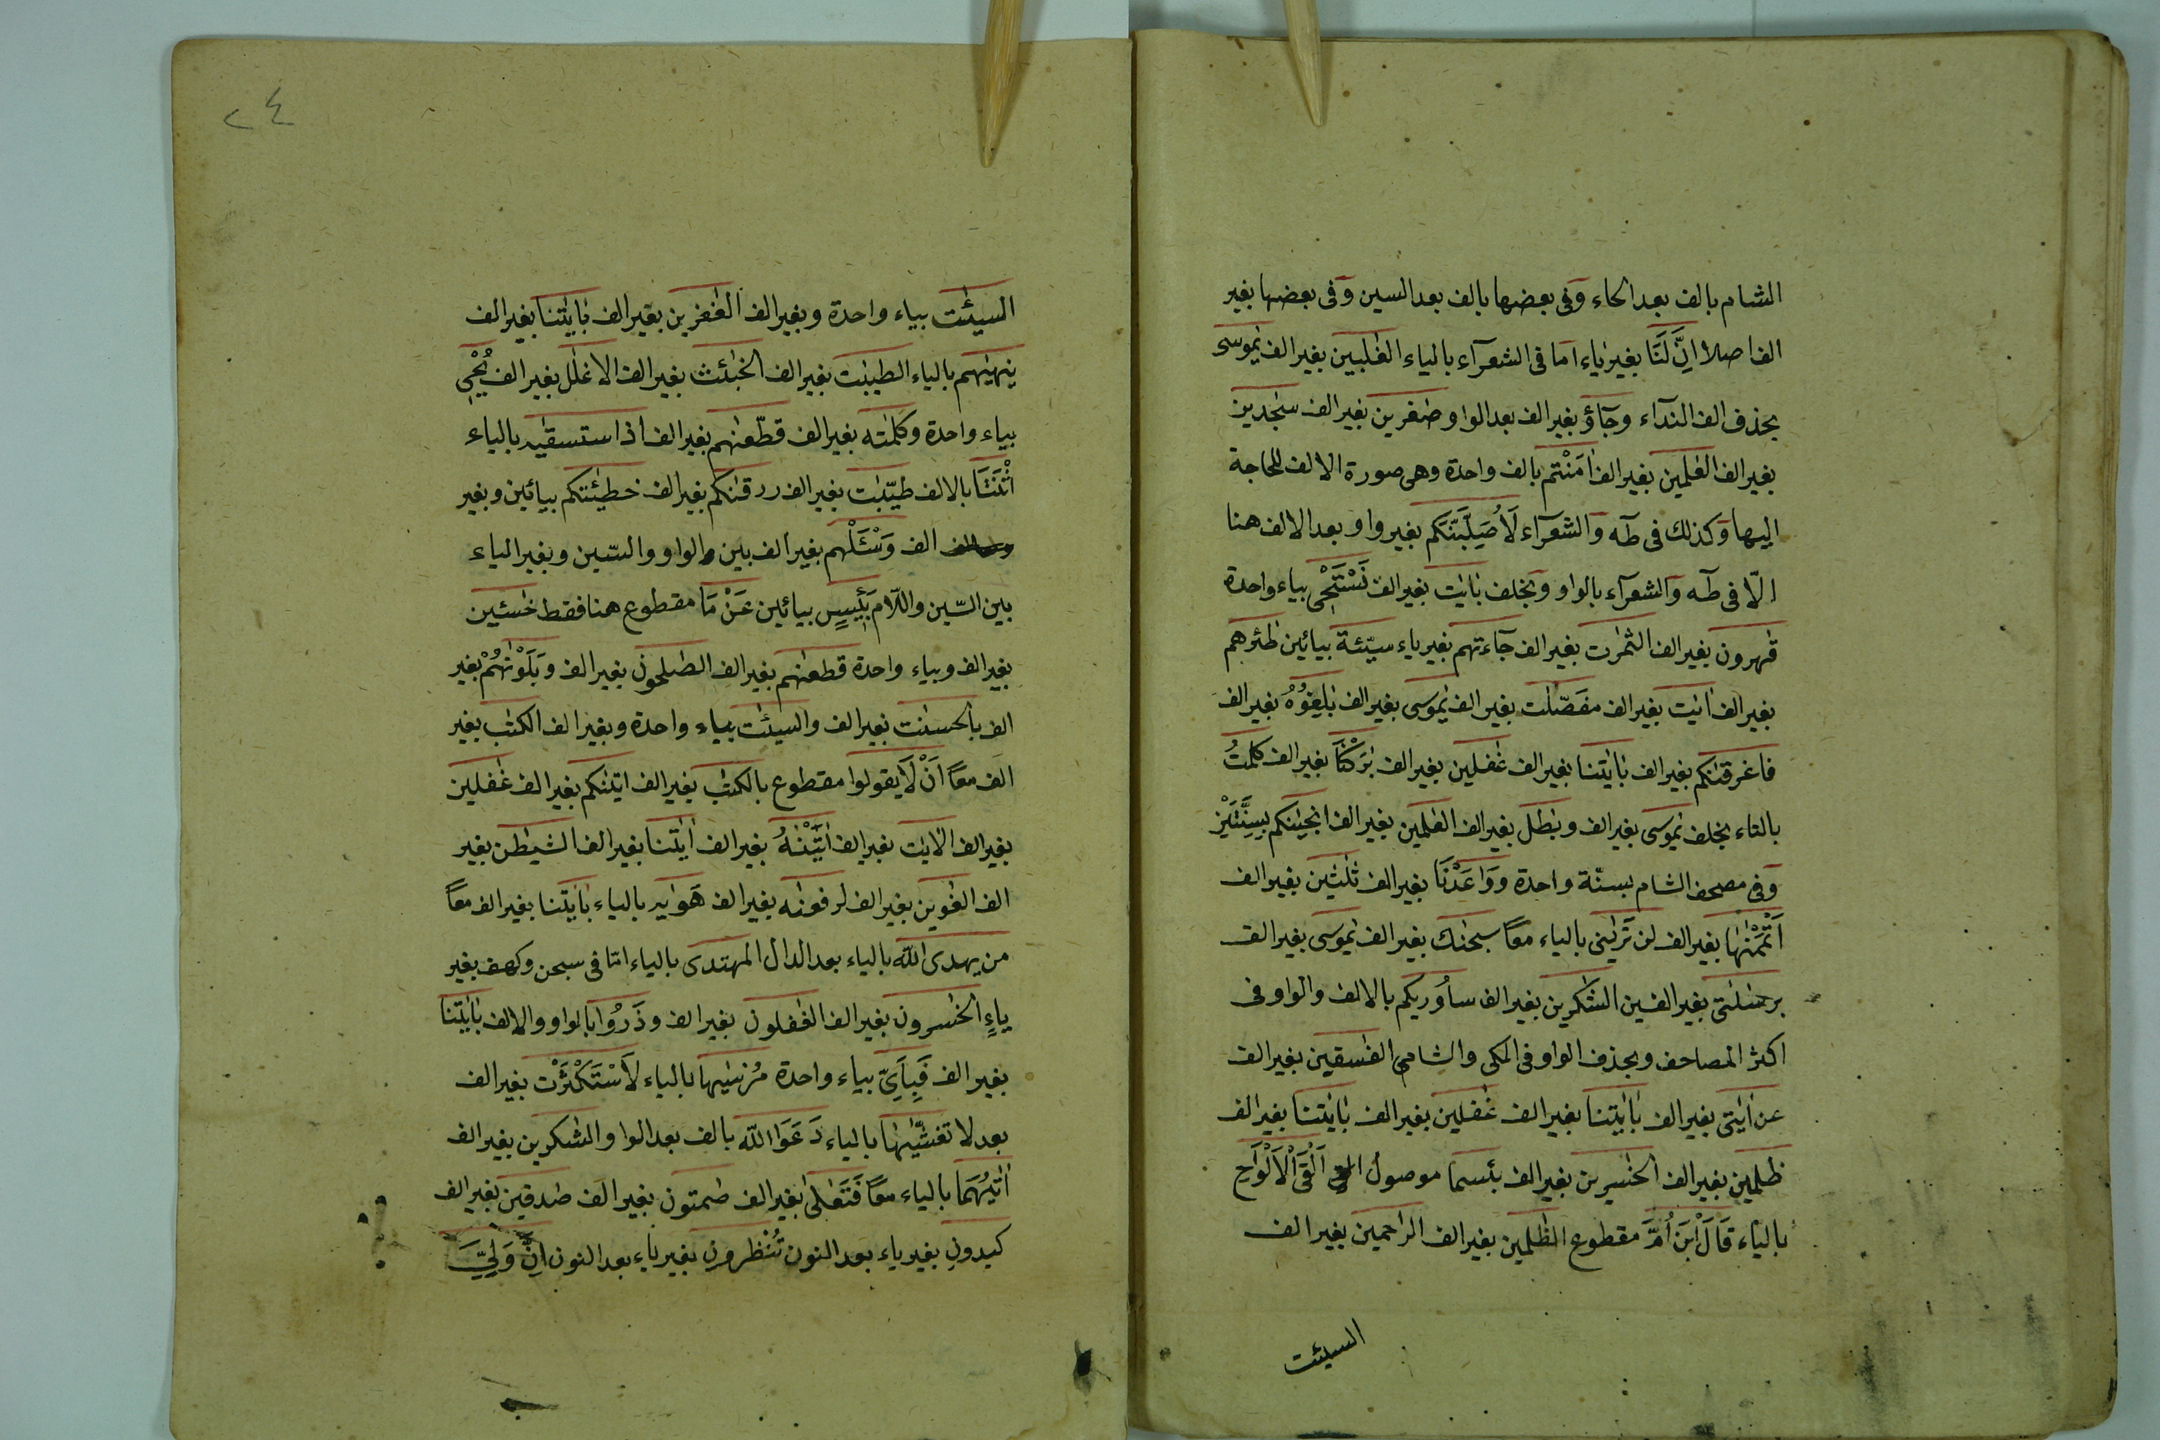 الشام بالف بعد الحاء وفى بعضها بالف بعد السين وفى بعضها بغير
الف اصلا انَّ لَنَا بغير ياء اما فى الشعرآء بالياء الغٰلبين بغير الف يٰموسى
بحذف الف الندآء وجآؤ بغير الف بعد الواو صٰغرين بغير الف سٰجدين
بغير الف العٰلمين بغير الف اٰمَنْتم بالف واحدة وهى صورة الالف للحاجة
اليها وكذلك فى طٓه والشعرآء لَاُصَلِّبَنّكم بغير واو بعد الالف هنا
الّا فى طٓه والشعرآء بالواو وبخلف بٰايٰت بغير الف نَسْتَحْىٖ بياء واحدة
قٰهرون بغير الف الثمرٰت بغير الف جآءتهم بغير ياء سيّئة بيائين طٰئرهم
بغير الف اٰيٰت بغير الف مفَصّلٰت بغير الف يٰموسى بغير الف بٰلِغُوْهُ بغير الف
فاغرقنٰكم بغير الف بٰايٰتنا بغير الف غٰفلين بغير الف بٰرَكْنَا بغير الف كلمتُ
بالتاء بخلف يٰموسى بغير الف وبٰطل بغير الف العٰلمين بغير الف انجينٰكم بسِنَّتَيْنِ
وفى مصحف الشام بسنّة واحدة ووَاعَدْنَا بغير الف ثلٰثين بغير الف
اَتْمَمْنٰهَا بغير الف لن تَرٰينى بالياء معًا سبحٰنك بغير الف يٰموسى بغير الف
برسٰلٰتى بغير الفين الشٰكرين بغير الف ساُوريكم بالالف والواو فى
اكثر المصاحف وبحذف الواو فى المكى والشامى الفٰسقين بغير الف
عن اٰيٰتى بغير الف بٰايٰتنا بغير الف غٰفلين بغير الف بٰايٰتنا بغير الف
ظٰلمين بغير الف الخٰسرين بغير الف بئسما موصول اَلْقَى الْاَلْوَاحَ
بالياء قَالَ ابْنَ اُمَّ مقطوع الظٰلمين بغير الف الراحمين بغير الف
السيئٰت
٢٤
السيئٰت بياء واحدة وبغير الف الغٰفرين بغير الف بٰايٰتنا بغير الف
ينهيٰهم بالياء الطيبٰت بغير الف الخبٰئث بغير الف الاغلٰل بغير الف يُحْىٖ
بياء واحدة وكلمٰته بغير الف قطّعنٰهم بغير الف اذ استسقٰيه بالياء
اثْنَتَا بالالف طيّبٰت بغير الف رزقنٰكم بغير الف خطيٰئتكم بيائين وبغير
الف وَسْئَلْهم بغير الف بين الواو والسّين وبغير الياء
بين السّين واللّام بَئِيسٍ بيائين عَنْ مَا مقطوع هنا فقط خٰسئين
بغير الف وبياء واحدة قطعنٰهم بغير الف الصٰلحون بغير الف وبَلَوْنٰهُمْ بغير
الف بالحسنٰت بغير الف والسيئٰت بياء واحدة وبغير الف الكتٰب بغير
الف معًا اَنْ لَا يقولوا مقطوع بالكتٰب بغير الف اتينٰكم بغير الف غٰفلين
بغير الف الاٰيٰت بغير الف اٰتَيْنٰهُ بغير الف اٰيٰتنا بغير الف الشيطٰن بغير
الف الغٰوين بغير الف لرفعنٰه بغير الف هَوٰيه بالياء بٰايٰتنا بغير الف معًا
من يهدى اللّٰه بالياء بعد الدال المهتدى بالياء اما فى سبحن وكهف بغير
ياءٍ الخٰسرون بغير الف الغٰفلون بغير الف وذَرُوا بالواو والالف بٰايٰتنا
بغير الف فَبِاَىِّ بياء واحدة مُرْسٰيها بالياء لَاسْتَكْثَرْت بغير الف
بعد لا تغشّٰيهٰا بالياء دَعَوَا اللّٰه بالف بعد الواو الشٰكرين بغير الف
اٰتٰيهُمَا بالياء معًا فَتَعٰلى بغير الف صٰمتون بغير الف صٰدقين بغير الف
كيدونِ بغير ياء بعد النون تُنْظرونِ بغير ياء بعد النون اِنَّ وَلِيِّىَ